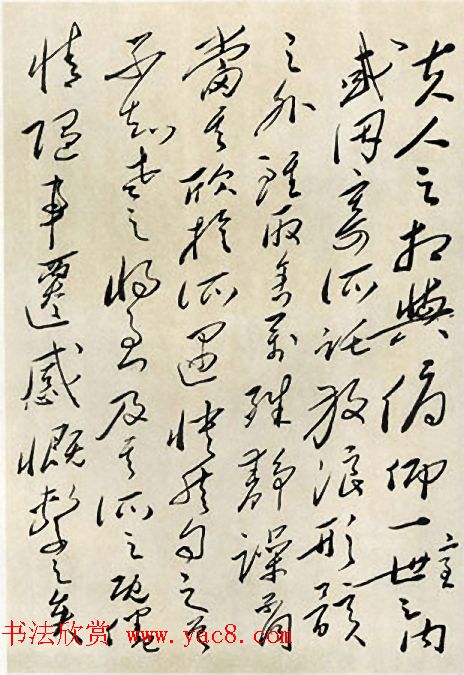 夫人之相與俯仰一世之内
室
或因寄所託放浪形骸
之外雖取舍萬殊靜躁不同
當其欣於所遇快然自足
不知老之將至及其所之既倦
情隨事遷感慨繫之矣
书法欣赏 www.yac8.com